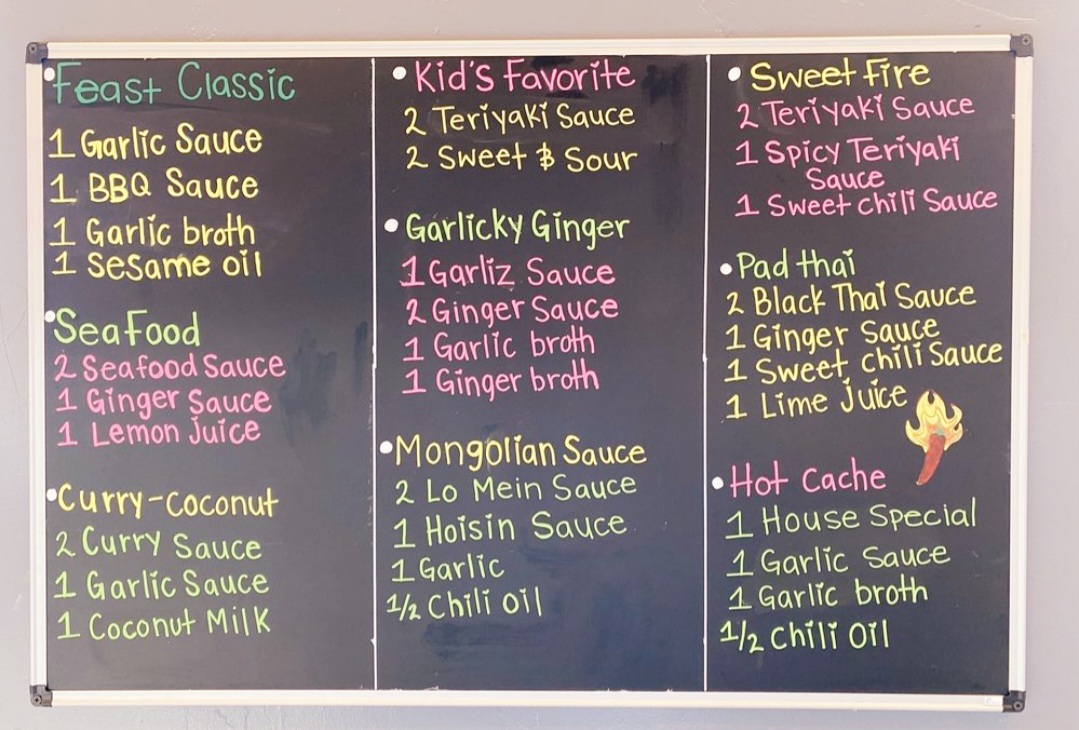 Feast Classic
1 Garlic Sauce
1 BBQ Sauce
1 Garlic broth
1 Sesame oil
Seafood
2 Seafood Sauce
1 Ginger Sauce
1 Lemon Juice
Curry-Coconut
2 Curry Sauce
1 Garlic Sauce
1 Coconut Milk
Kid's Favorite
2 Teriyaki Sauce
2 Sweet & Sour
Garlicky Ginger
1 Garliz Sauce
2 Ginger Sauce
1 Garlic broth
1 Ginger broth
Mongolian Sauce
2 Lo Mein Sauce
1 Hoisin Sauce
1 Garlic
1/2 Chili Oil
Sweet Fire
2 Teriyaki Sauce
1 Spicy Teriyaki
Sauce
1 Sweet Chili Sauce
Pad thai
2 Black Thai Sauce
1 Ginger Sauce
1 Sweet chili Sauce
1 Lime Juice
Hot Cache
1 House Special
1 Garlic Sauce
1 Garlic broth
1/2 Chili Oil